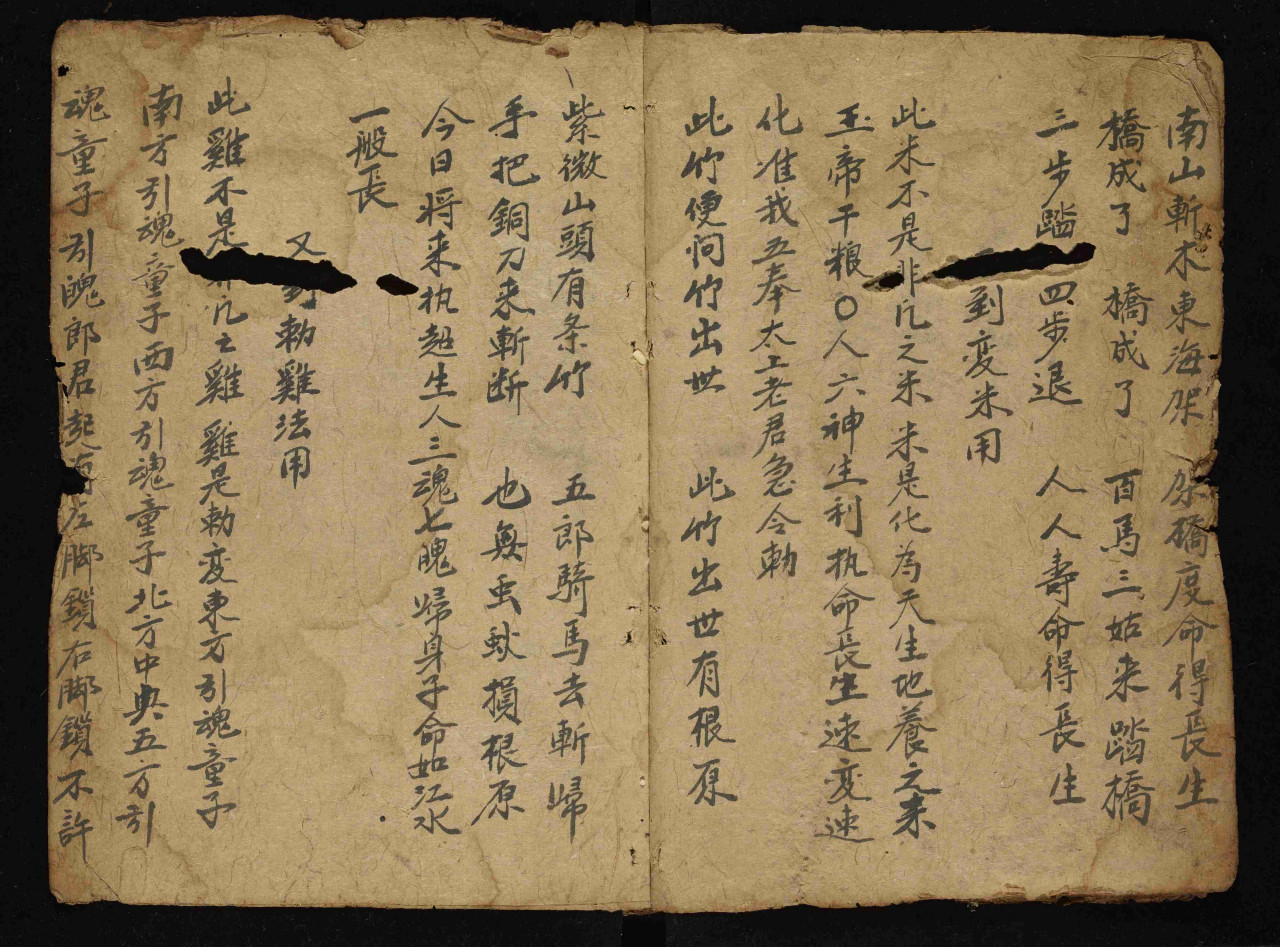 南山斬木東海架 架橋度命得長生
橋成了 橋成了 百馬三姑来踏橋
三步踏 四步退 人人壽命得長生
到変米用
此米不是非凡之米米是化為天生地養之来
玉帝干粮〇人六神生利执命長生速変速
化准我五奉太上老君急令勅
此竹便问竹出世 此竹出世有根原
紫微山頭有条竹 五郎騎馬去斬歸
手把銅刀来斬断 也無虫蚁損根原
今日将来执起生人三魂七魄歸身子命如江水
一般長
又到勅雞法用
此雞不是非凡之雞 雞是勅変東方引魂童子
南方引魂童子西方引魂童子北方中典五方引
魂童子 引魄郎君起 左脚鎖右脚鎖不許